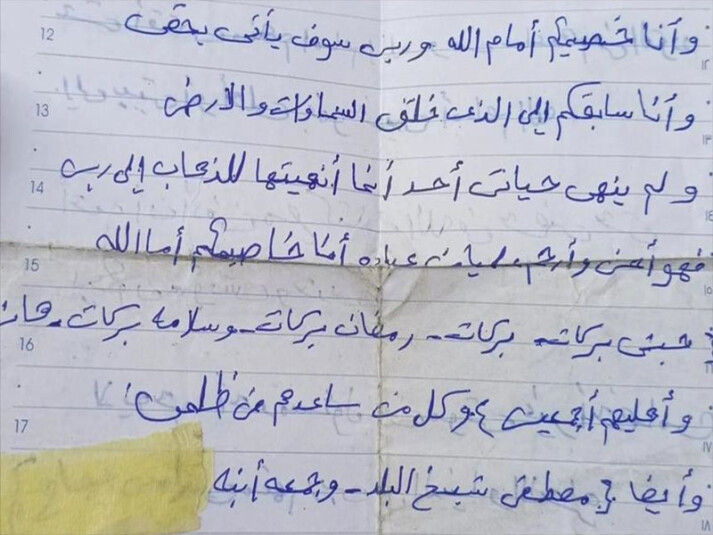 وأنا خصيمكم أمام الله وربى سوف يأتى بحقى
12
وأنا سابقكم إلى الذى خلق السماوات والأرض
13
ولم ينهى حياتى أحد أنما أنهيتها للذهاب إلى ربى
14
فهو أحن وأرحم عباده أما الله
15
بركات - بركات - رمضان بركات - وسلامه بركات
16
وأهليهم أجمعين وكل من ساعدهم من ظلمى
17
وأيضا مصطفى شيخ البلد - وجمعه أبنه